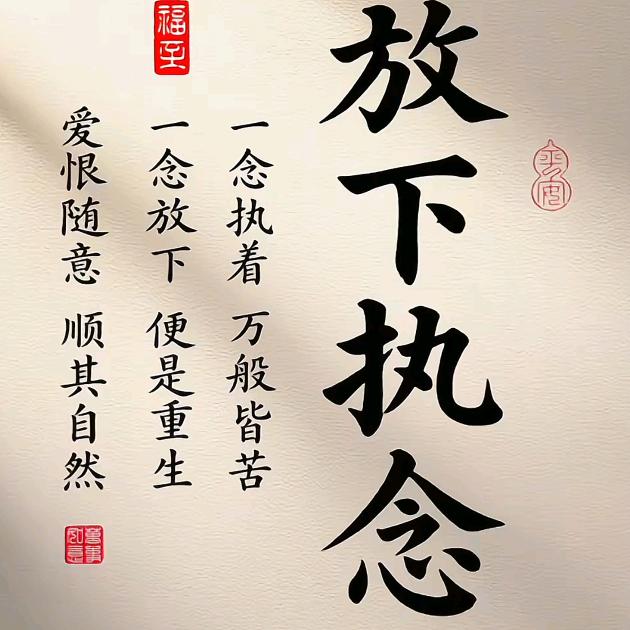 放下执念
一念执着 万般皆苦
一念放下 便是重生
爱恨随意 顺其自然
福至
平安
萬事如意